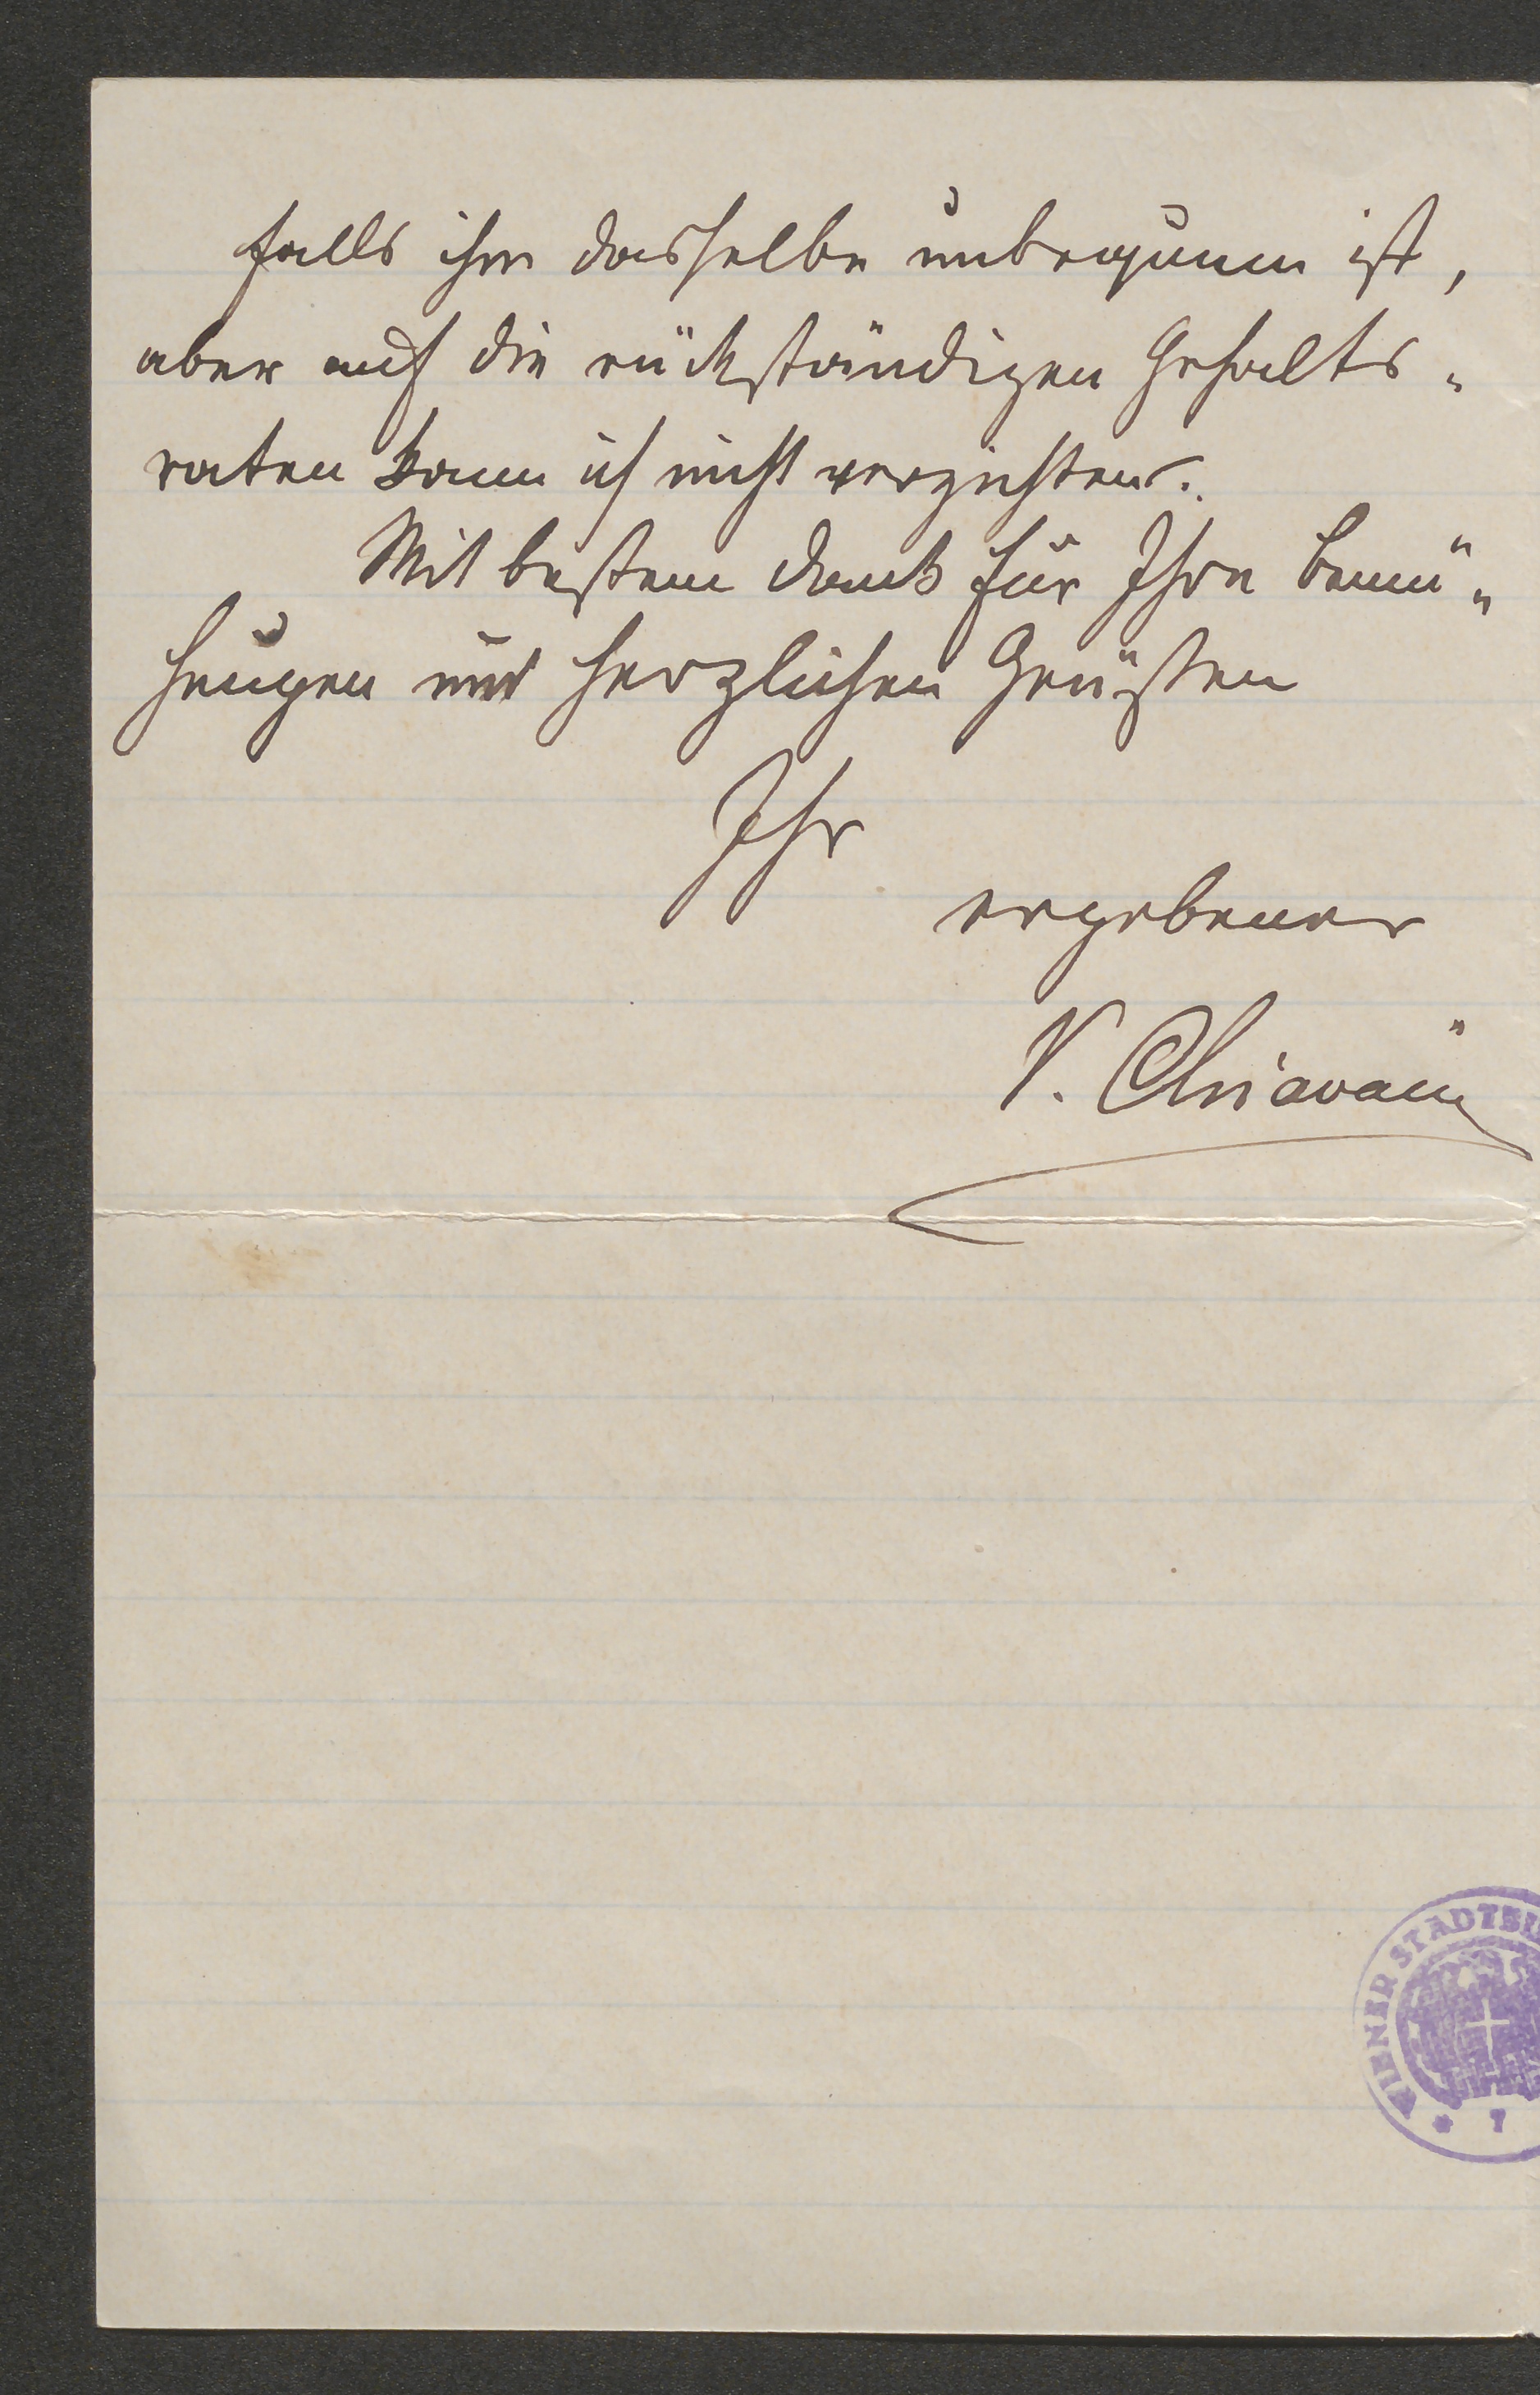 falls ihm dasselbe unbequem ist,
aber auf die rückständigen Gehalts-
raten kann ich nicht verzichten.
Mit bestem Dank für Ihre Bemü-
hungen und herzlichen Grüßen
Ihr
ergebener
V. Chiavacci
WIENER STADTBI
* 7